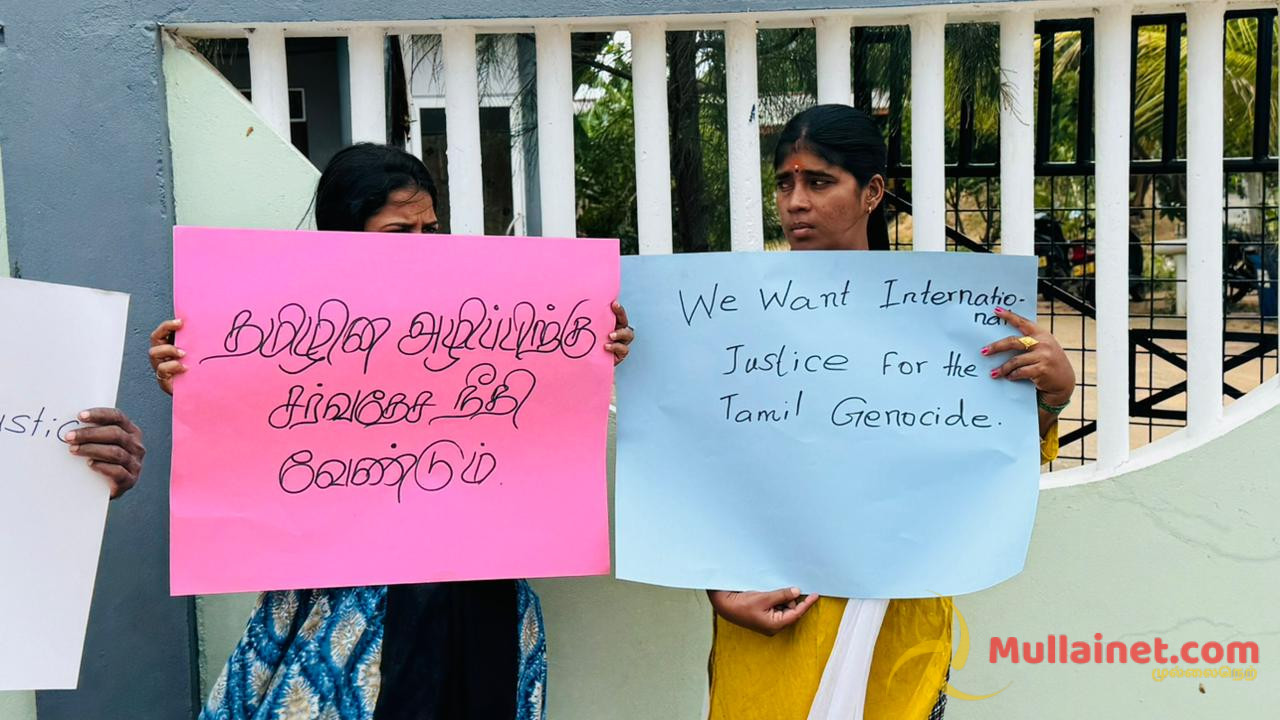 தமிழின அழிப்பிற்கு
சர்வதேச நீதி
வேண்டும்.
We Want Internatio-
nal
Justice For the
Tamil Genocide.
Mullainet.com